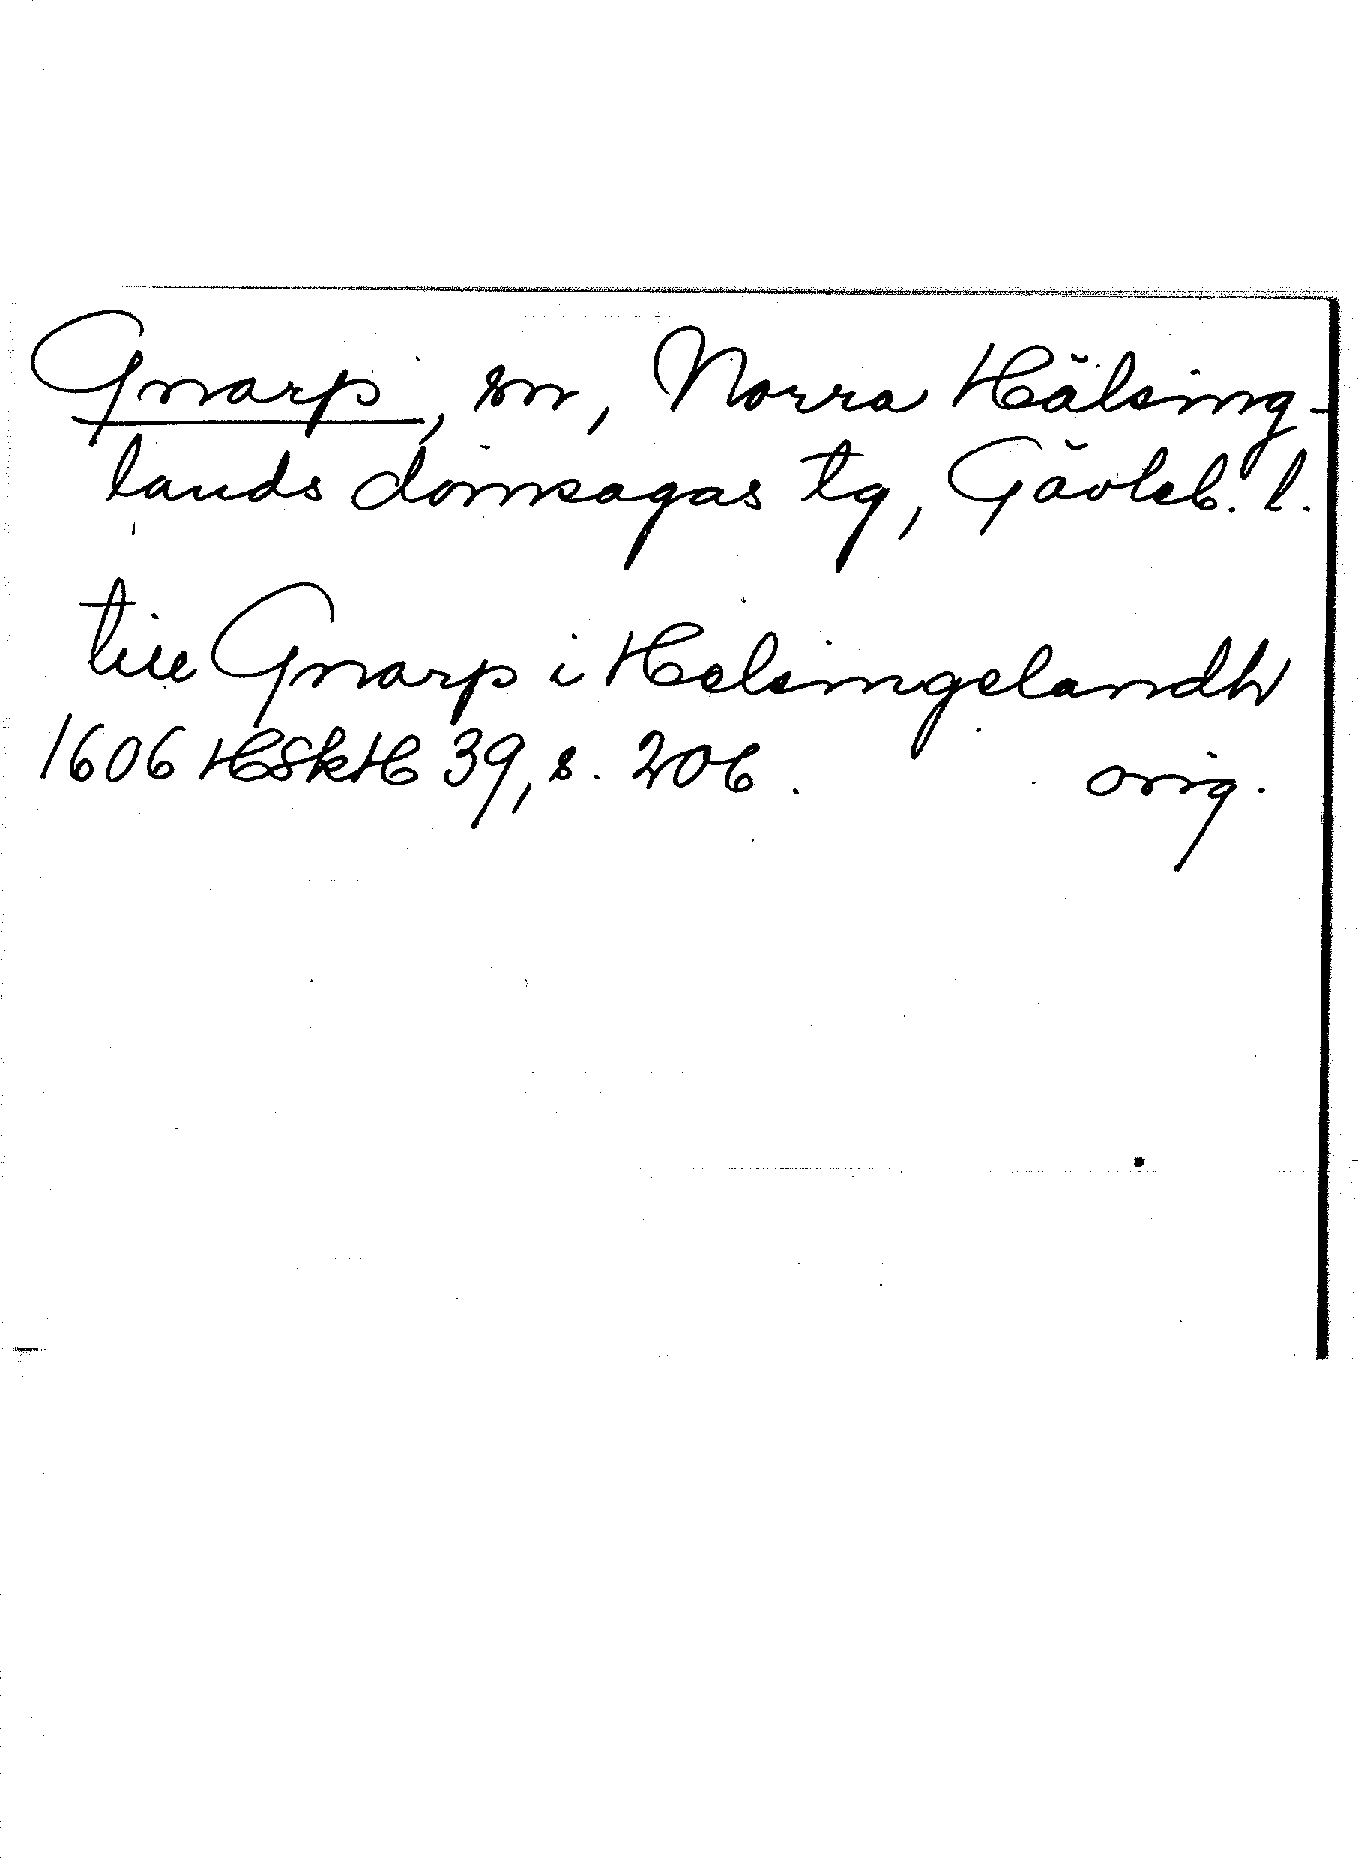 Gnarp, sn, Norra Hälsing-
lands domsagas tg, Gävleb. l.
till Gnarp i Helsingelandh
1606 HSkH 39, s. 206. orig.